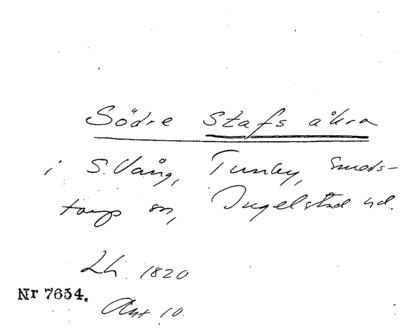 Södre Stafs åkra
i S. Vång, Tunby, Smeds-
torp sn, Ingelstad hd.
Lh. 1820
Akt 10.
Nr 7654.